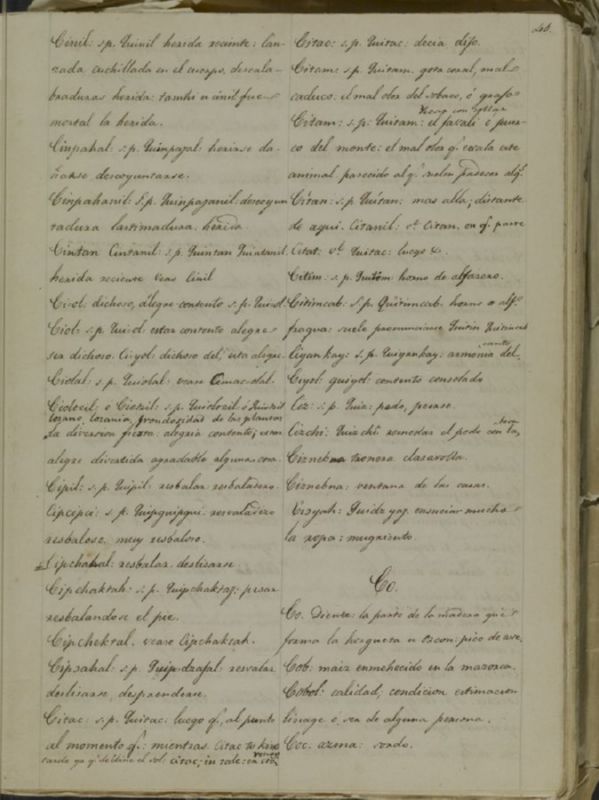 Cinil: s.p. Quinil herida reciente: lan-
zada cuchillada en el cuerpo, descala-
bradura herida: tambn u cinil fue
mortal la herida.
Cinpahal: s.p. Quinpajal: herirse da-
ñarse descoyuntarse.
Cinpahanil: s.p. Quinpajanil: descoyun
tadura lastimadura, herida
Cintan Cintanil: s.p. Quintan Quintanil
herida reciente veas Cinil
Ciol, dichoso, alegre contento s.p. Quiol.
Ciol: s.p. Quiol estar contento alegre
ser dichoso. Ciyol: dichoso del, esta alegre.
Ciolal: s.p. Quiolal: vease Cimac.olal.
Ciolcil: ó
lozano, lozania, frondosidad de las plantas
da diversion fiesta: alegria contento; estar
alegre divertida agradable alguna cosa.
Cipil: s.p. Quipil: resbalar resbaladero.
Cipcipci: s.p. Quipquipqui: resvaladizo
resbaloso, muy resbaloso.
Cipchahal: resbalar, deslisarse
Cipchaktah: s.p. Quipchaktaj: pisar
resbalandose el pie.
Cipchektal. vease Cipchaktah.
Cipzahal: s.p. Quipdzajal: resvalar
deslisarse, desprenderse.
Citac: s.p. Quitac: luego q̃, al punto
al momento q̃: mientras. Citac tu
tarde ya q̃ decline el sol: citac; in tale: en
46.
Citac: s.p. Quitac: decia dijo.
Citam: s.p. Quitam. gota coral, mal
caduco. el mal olor del sobaco, ó grajo
Citam: s.p. Quitam: el javali ó puer-
co del monte: el mal olor q̃ exala este
animal parecido al q̃ suelen padecer alg.
Citan: s.p. Quitan: mas alla; distante
de aqui. Citanil: vt. Citan. en q̃ parte
Citat: vt. Quitac: luego &.
Citim: s.p. Quitim: horno de alfarero.
Citimcab: s.p. Quitimcab: horno o alf
fragua: suele pronunciarse Quitin Quitincab
Ciyankay: s.p. Quiyankay: armonia del
canto
Ciyol: quiyol: contento consolado
Ciz: s.p. Quiz: pedo, peerse.
Cizchi: Quizchi remedar el pedo con la
boca
Ciznebna tronera claravolla.
Ciznebna: ventana de las casas.
Cizyah: Quidzyaj. ensuciar mucho
la ropa: mugriento.
Co.
Co. Diente: la parte de la madera que
forma la horqueta u ozcon: pico de ave.
Cob. maiz enmohecido en la mazorca.
Cobol: calidad, condicion estimacion
linage ó sea de alguna persona.
Coc. azma: sordo.